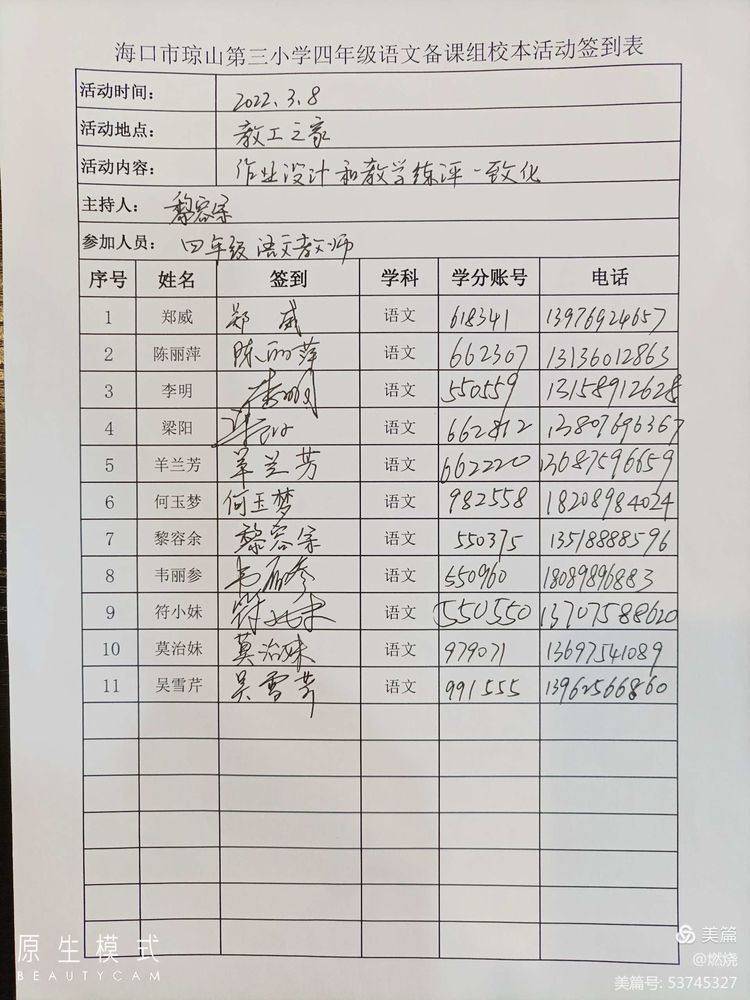 海口市琼山第三小学四年级语文备课组校本活动签到表
活动时间： 2022.3.8
活动地点： 教工之家
活动内容： 作业设计和教学练评一致化
主持人： 黎容余
参加人员： 四年级语文教师
序号 姓名 签到 学科 学分账号 电话
1 郑威 郑威 语文 618341 13976924657
2 陈丽萍 陈丽萍 语文 662307 13136012863
3 李明 李明 语文 550559 13158912628
4 梁阳 语文 662812 13807696367
5 羊兰芳 羊兰芳 语文 662220 13687596659
6 何玉梦 何玉梦 语文 982558 18208984024
7 黎容余 黎容余 语文 550375 13518888596
8 韦丽参 韦丽参 语文 550960 18089896883
9 符小妹 符小妹 语文 550550 13707588620
10 莫治妹 莫治妹 语文 979071 13697541089
11 吴雪芹 吴雪芹 语文 991555 13962566860
原生模式
BEAUTYCAM
美篇
@燃烧
美篇号: 53745327